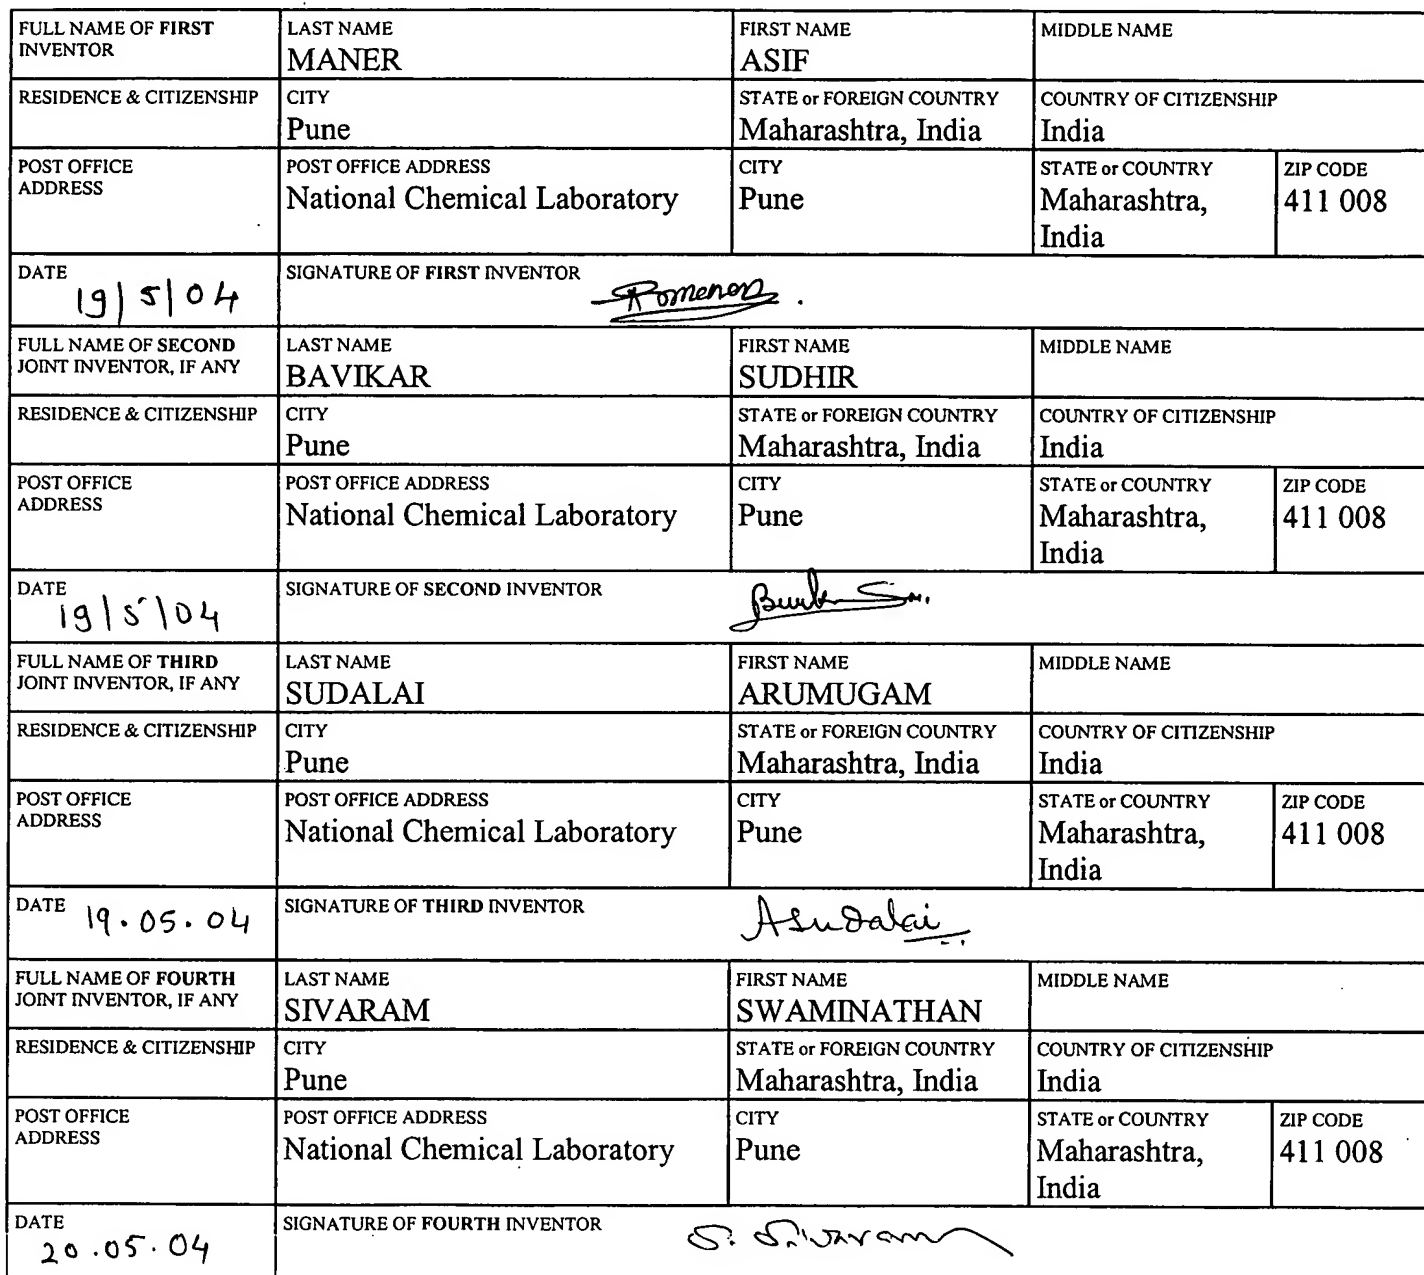 FULL NAME OF FIRST INVENTOR
LAST NAME
MANER
FIRST NAME
ASIF
MIDDLE NAME
RESIDENCE & CITIZENSHIP
CITY
Pune
STATE or FOREIGN COUNTRY
Maharashtra, India
COUNTRY OF CITIZENSHIP
India
POST OFFICE
ADDRESS
POST OFFICE ADDRESS
National Chemical Laboratory
CITY
Pune
STATE or COUNTRY
Maharashtra,
India
ZIP CODE
411 008
DATE
19/5/04
SIGNATURE OF FIRST INVENTOR
FULL NAME OF SECOND
JOINT INVENTOR, IF ANY
LAST NAME
BAVIKAR
FIRST NAME
SUDHIR
MIDDLE NAME
RESIDENCE & CITIZENSHIP
CITY
Pune
STATE or FOREIGN COUNTRY
Maharashtra, India
COUNTRY OF CITIZENSHIP
India
POST OFFICE
ADDRESS
POST OFFICE ADDRESS
National Chemical Laboratory
CITY
Pune
STATE or COUNTRY
Maharashtra,
India
ZIP CODE
411 008
DATE
19/5/04
SIGNATURE OF SECOND INVENTOR
FULL NAME OF THIRD
JOINT INVENTOR, IF ANY
LAST NAME
SUDALAI
FIRST NAME
ARUMUGAM
MIDDLE NAME
RESIDENCE & CITIZENSHIP
CITY
Pune
STATE or FOREIGN COUNTRY
Maharashtra, India
COUNTRY OF CITIZENSHIP
India
POST OFFICE
ADDRESS
POST OFFICE ADDRESS
National Chemical Laboratory
CITY
Pune
STATE or COUNTRY
Maharashtra,
India
ZIP CODE
411 008
DATE
19.05.04
SIGNATURE OF THIRD INVENTOR
ASudalai
FULL NAME OF FOURTH
JOINT INVENTOR, IF ANY
LAST NAME
SIVARAM
FIRST NAME
SWAMINATHAN
MIDDLE NAME
RESIDENCE & CITIZENSHIP
CITY
Pune
STATE or FOREIGN COUNTRY
Maharashtra, India
COUNTRY OF CITIZENSHIP
India
POST OFFICE
ADDRESS
POST OFFICE ADDRESS
National Chemical Laboratory
CITY
Pune
STATE or COUNTRY
Maharashtra,
India
ZIP CODE
411 008
DATE
20.05.04
SIGNATURE OF FOURTH INVENTOR
S. Sivaram